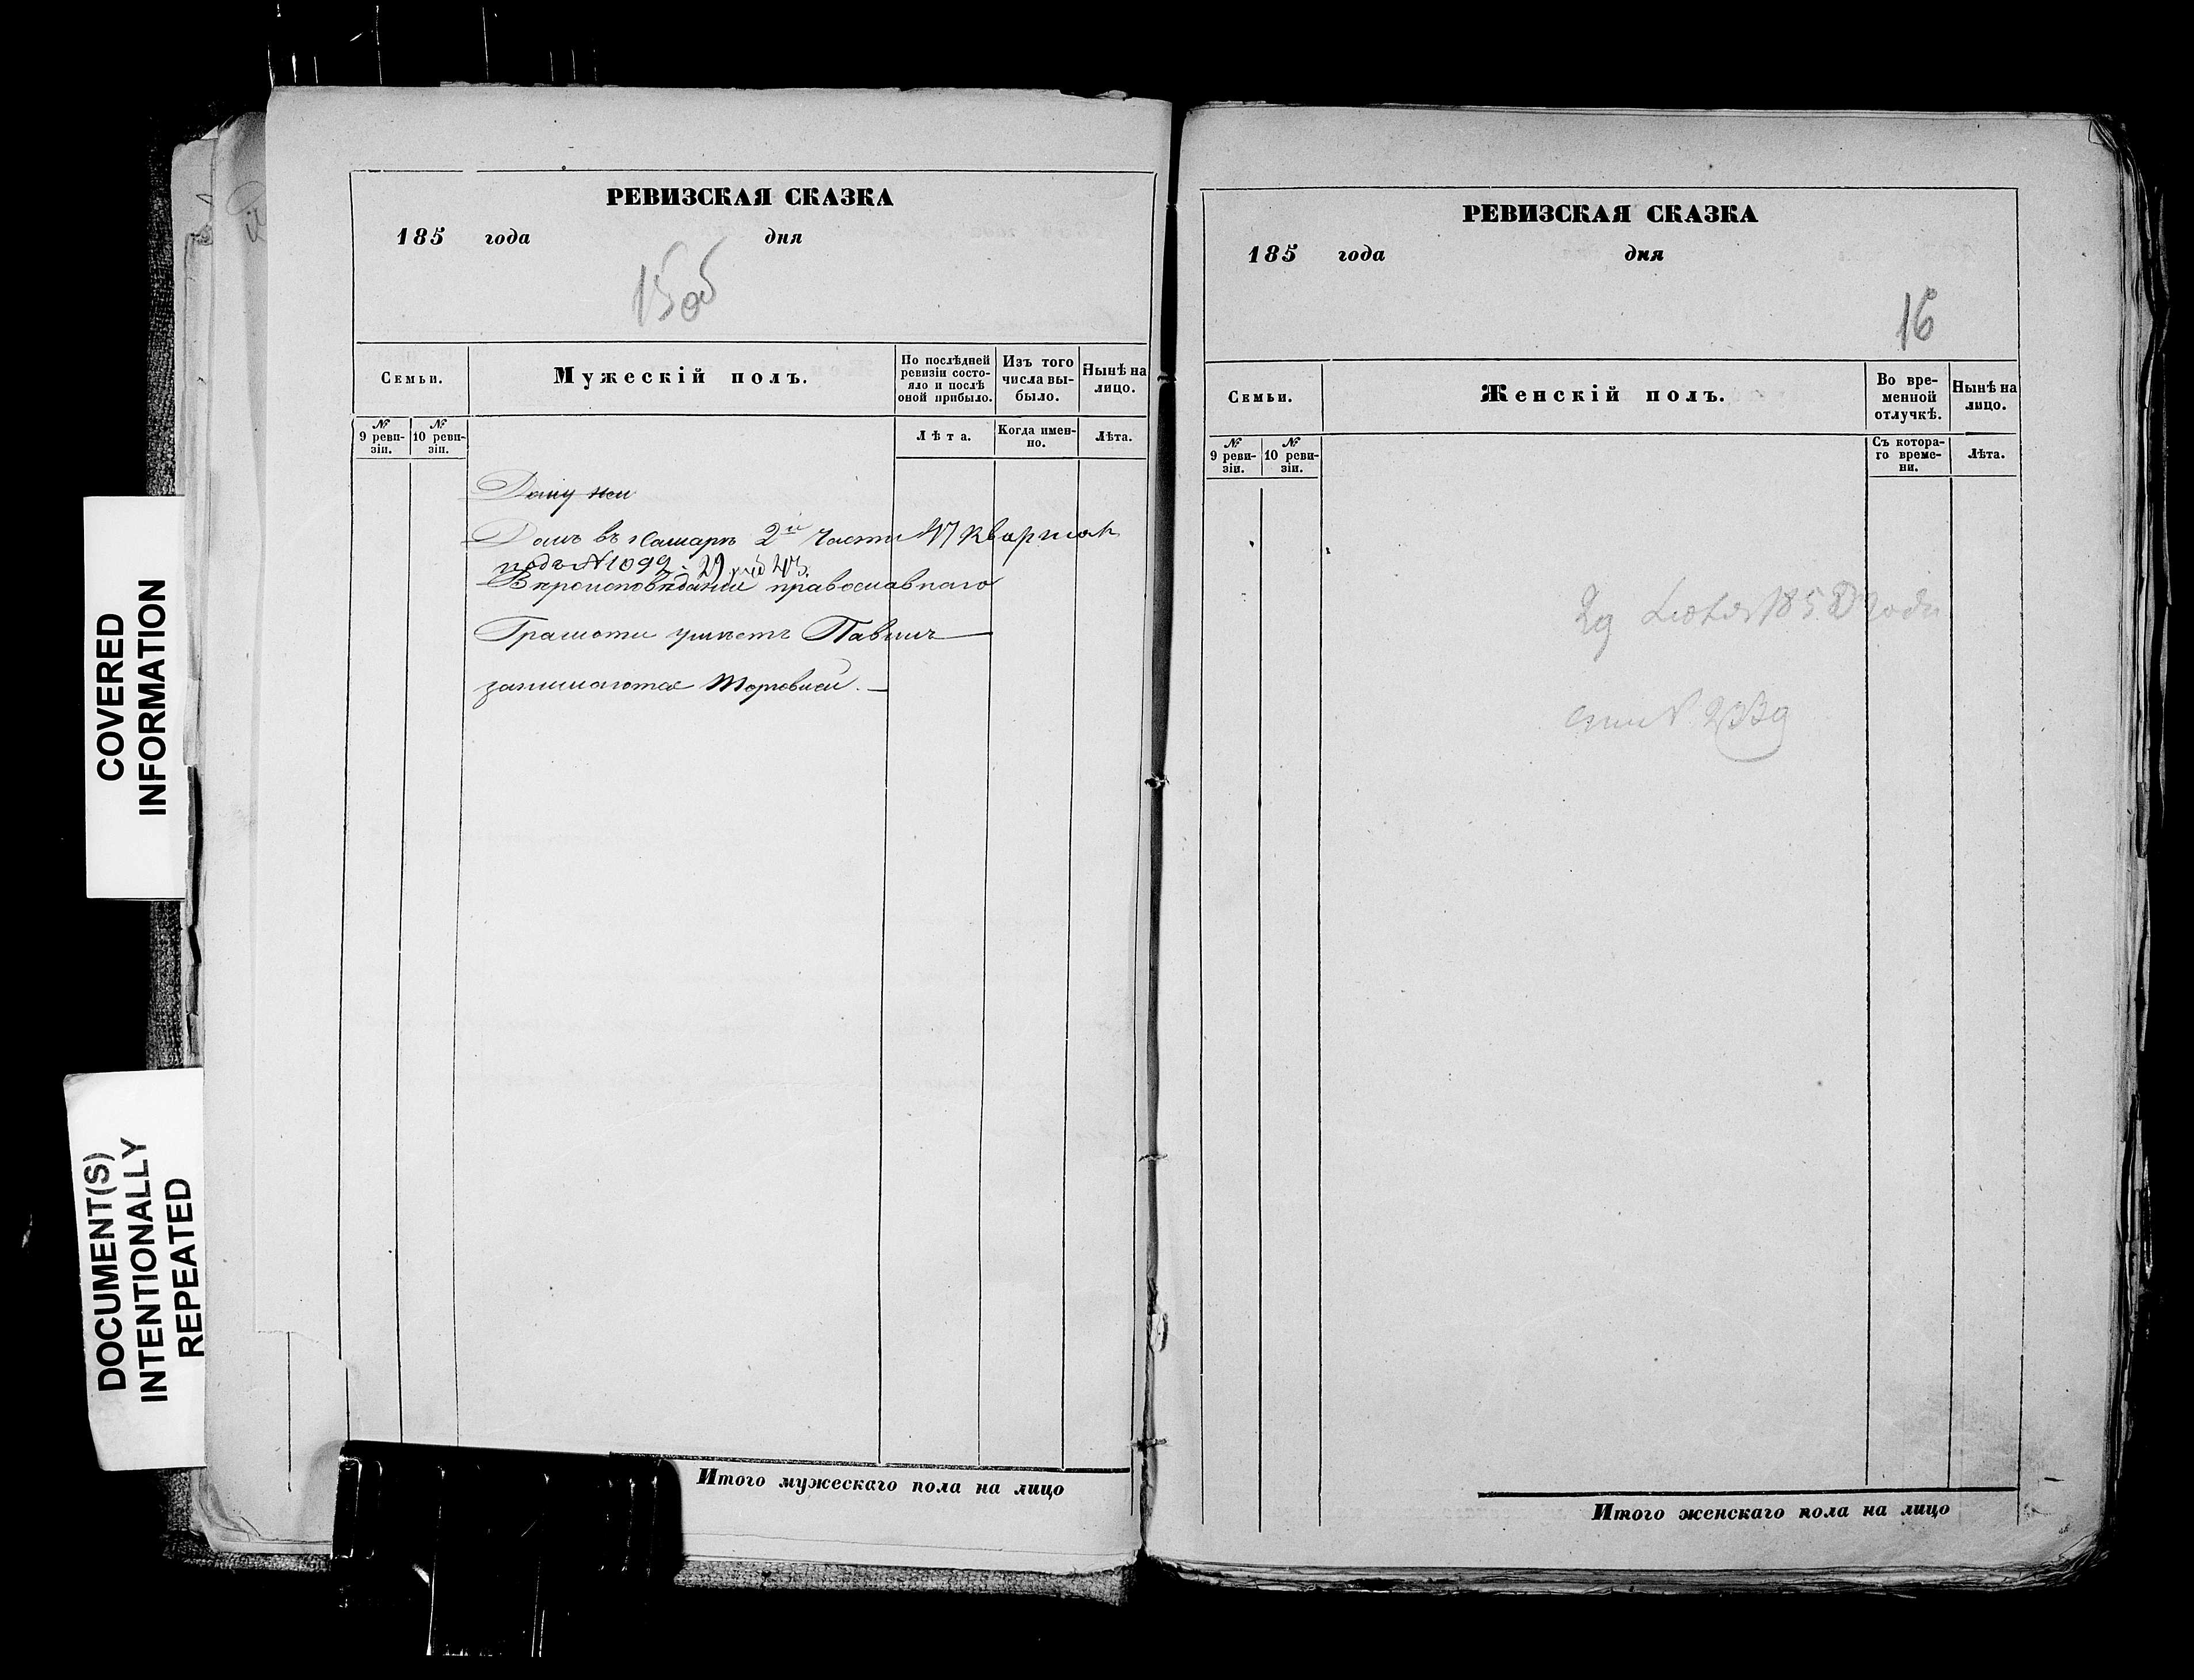 COVERED
INFORMATION
DOCUMENT(S)
INTENTIONALLY
REPEATED
РЕВИЗСКАЯ СКАЗКА
185 года дня
15об
Семьи.
Мужескій полъ.
По послѣдней
ревизіи состо-
яло и послѣ
оной прибыло.
Изъ того
числа вы-
было.
Нынѣ на
лицо.
№
9 реви-
зіи.
№
10 реви-
зіи.
Лѣта.
Когда имен-
но.
Лѣта.
Домъ въ Самарѣ 2й части кварталъ
подъ №1092
Вѣроисповѣданія православнаго
Грамоти умѣетъ
занимаются торовлей.
Итого мужескаго пола на лицо
РЕВИЗСКАЯ СКАЗКА
185 года дня
16
Семьи.
Женскій полъ.
Во вре-
менной
отлучкѣ.
Нынѣ на
лицо.
№
9 реви-
зіи.
№
10 реви-
зіи.
Съ котора-
го време-
ни.
Лѣта.
1858 года
Итого женскаго пола на лицо